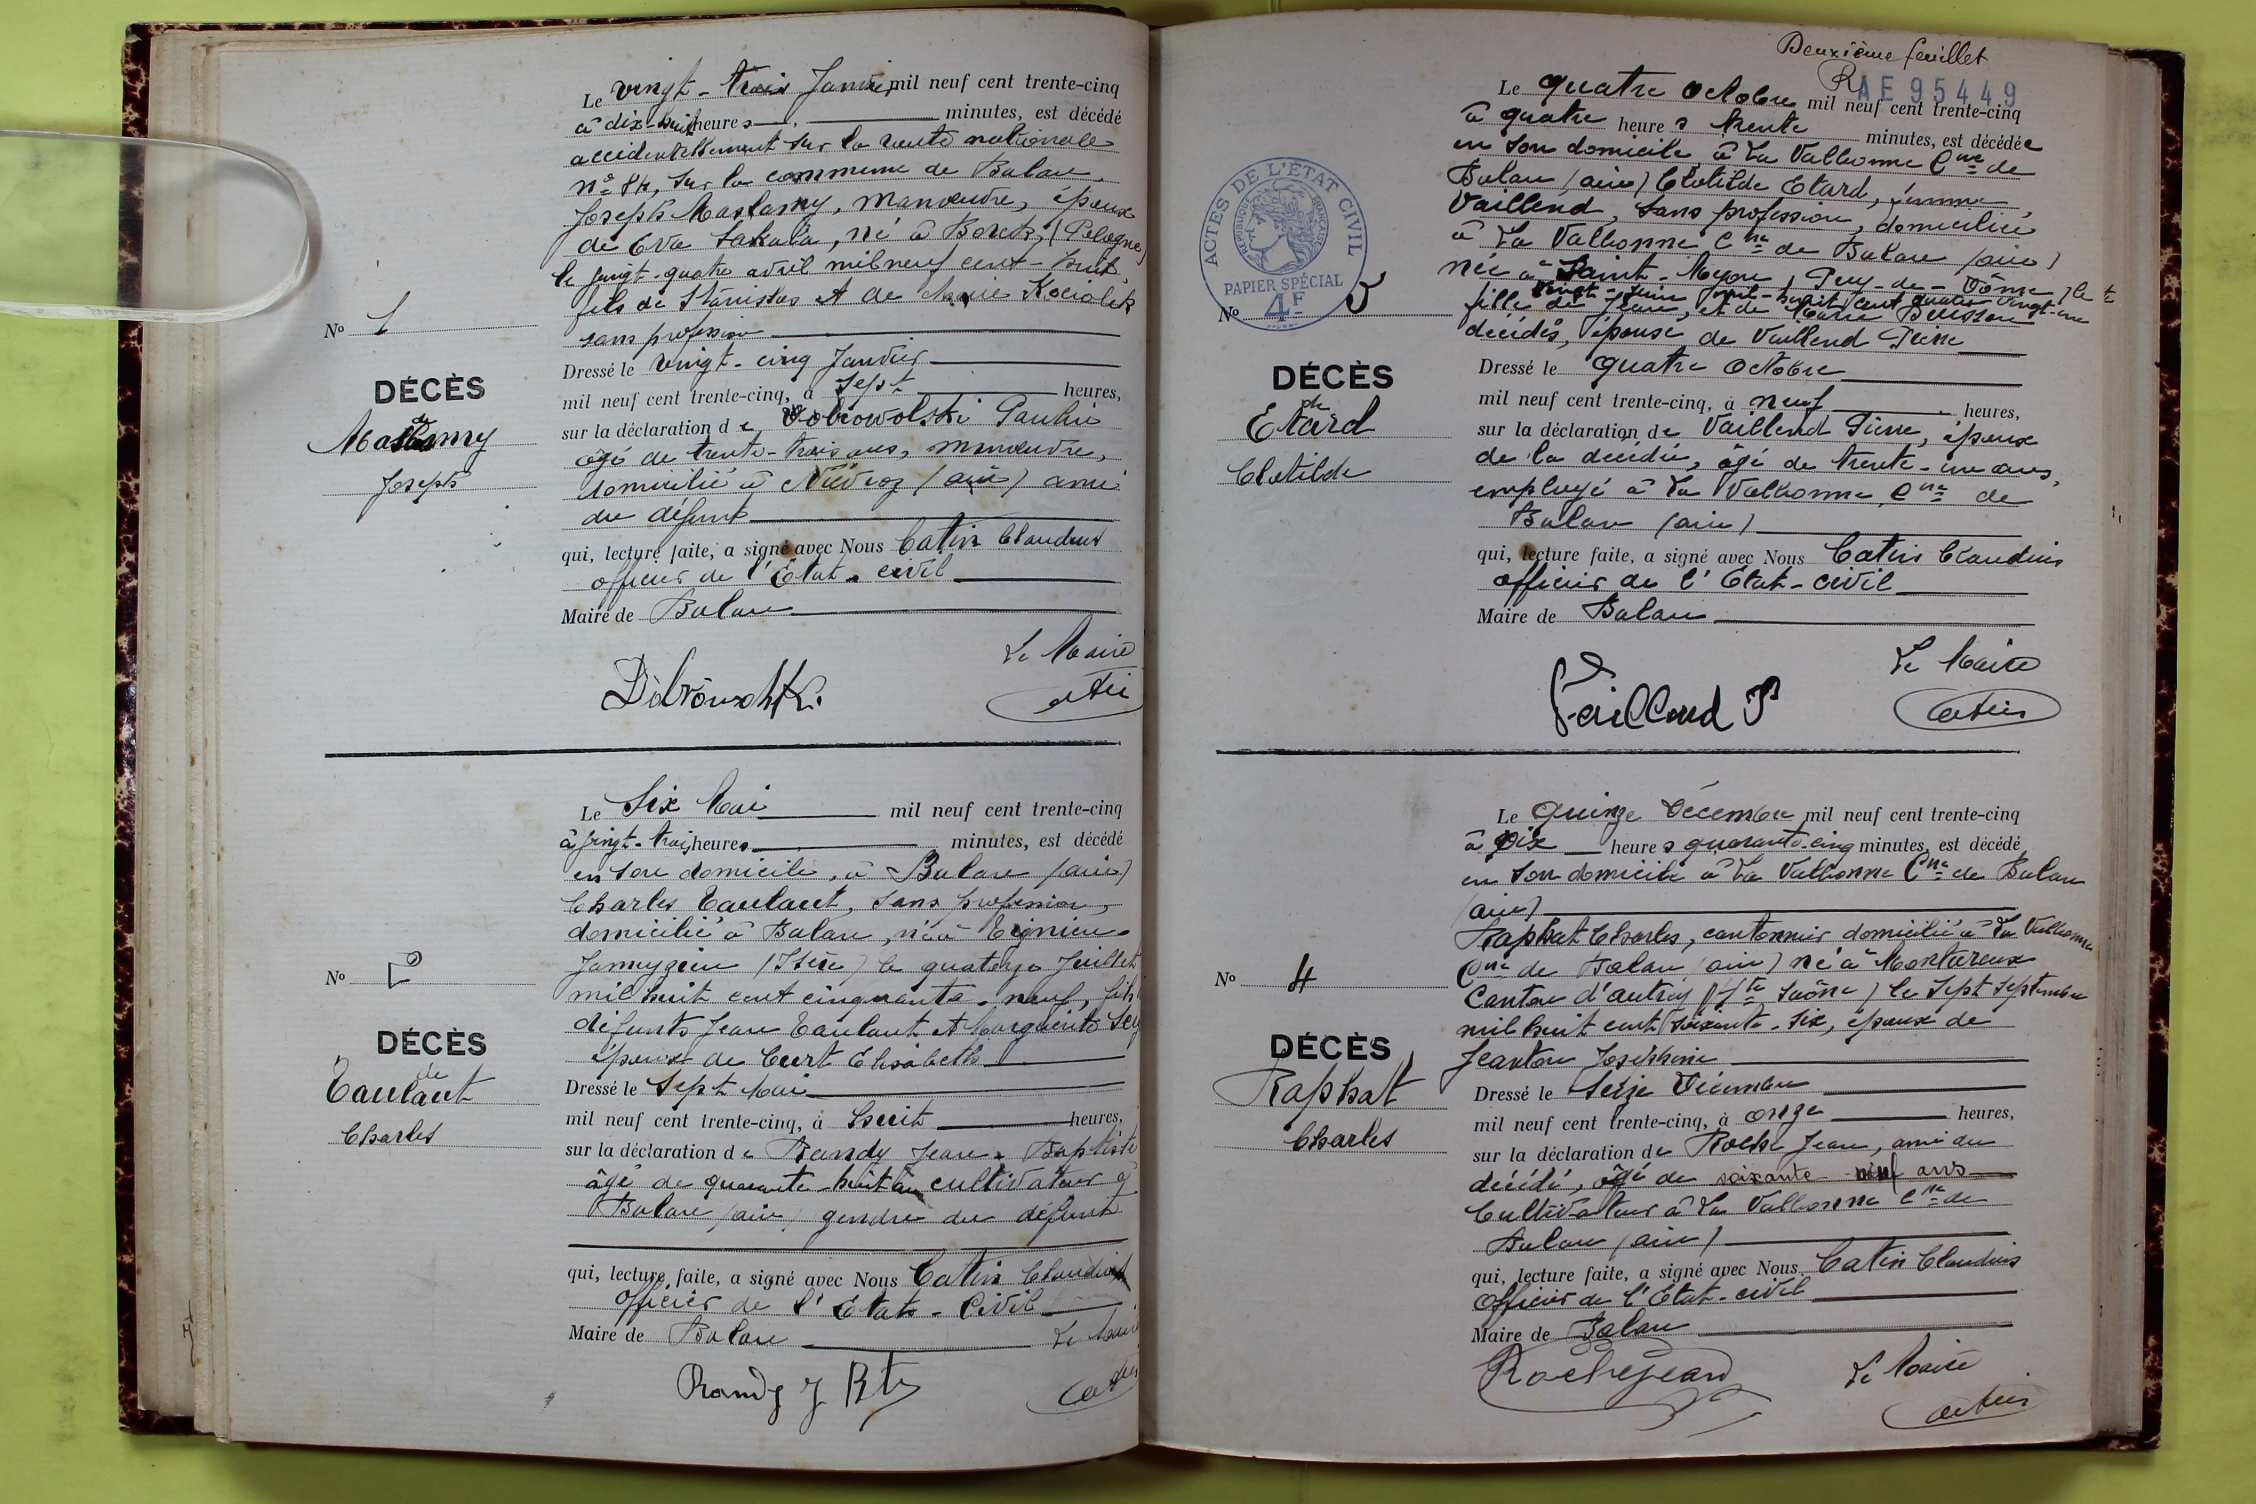 Le vingt-trois Janvier mil neuf cent trente-cinq
à dix-huit heures minutes, est décédé
accidentellement sur la route nationale
n° 84, sur la commune de Balan,
Joseph Maslamy, manœuvre, époux
de Eva Sakala, né à Borek, (Pologne)
le vingt-quatre avril mil neuf cent-huit,
fils de Stanislas et de Marie Kociolek
sans profession
Dressé le vingt-cinq Janvier
mil neuf cent trente-cinq, à sept heures,
sur la déclaration de Dobrowolski
âgé de trente-trois ans, manœuvre,
domicilié à Niévroz (ain) ami
du défunt
qui, lecture faite, a signé avec Nous Catin Claudius
officier de l'Etat-civil
Maire de Balan
Le Maire
Catin
N° 1
DÉCÈS
de
Maslamy
Joseph
Le Six Mai mil neuf cent trente-cinq
à vingt-trois heures minutes, est décédé
en son domicile, à Balan (ain)
Charles Taulaut, sans profession,
domicilié à Balan, né à Tignieu-
Jameyzieu (Isère) le quatorze Juillet
mil huit cent cinquante-neuf, fils
défunts Jean Taulaut et Marguerite
époux de Curt Elisabeth
Dressé le Sept Mai
mil neuf cent trente-cinq, à huit heures,
sur la déclaration de Randy Jean-Baptiste
âgé de quarante-huit ans cultivateur à
Balan (ain) gendre du défunt
qui, lecture faite, a signé avec Nous Catin Claudius
officier de l'Etat-Civil
Maire de Balan Le Maire
Randy J Bte
Catin
N° 2
DÉCÈS
de
Taulaut
Charles
Deuxième feuillet
R
AE 95449
Le quatre octobre mil neuf cent trente-cinq
à quatre heures trente minutes, est décédée
en son domicile, à La Valbonne Cne de
Balan (ain) Clotilde Etard, femme
Vaillend, sans profession, domiciliée
à La Valbonne Cne de Balan (ain)
née à Saint- (Puy-de-Dôme) le
vingt-juin mil-huit cent quatre-vingt-un
fille de Jean, et de Marie Buisson
décédés, épouse de Vaillend Pierre
Dressé le quatre octobre
mil neuf cent trente-cinq, à neuf heures,
sur la déclaration de Vaillend Pierre, époux
de la décédée, âgé de trente-un ans,
employé à La Valbonne, Cne de
Balan (ain)
qui, lecture faite, a signé avec Nous Catin Claudius
officier de l'Etat-civil
Maire de Balan
Le Maire
Vaillend P
Catin
ACTES DE L'ÉTAT CIVIL
RÉPUBLIQUE FRANÇAISE
PAPIER SPÉCIAL
4F
N° 3
DÉCÈS
de
Etard
Clotilde
Le quinze Décembre mil neuf cent trente-cinq
à dix heures quarante-cinq minutes, est décédé
en son domicile à La Valbonne Cne de Balan
(ain)
Raphat Charles, cantonnier domicilié à La Valbonne
Cne de Balan (ain) né à Montureux
Canton d'autrey (Hte Saône) le Sept Septembre
mil huit cent soixante-six, époux de
Jeanton Joséphine
Dressé le Seize Décembre
mil neuf cent trente-cinq, à onze heures,
sur la déclaration de Roche Jean, ami du
décédé, âgé de soixante-neuf ans
Cultivateur à La Valbonne Cne de
Balan (ain)
qui, lecture faite, a signé avec Nous Catin Claudius
officier de l'Etat-civil
Maire de Balan
Roche Jean
Le Maire
Catin
N° 4
DÉCÈS
Raphat
Charles